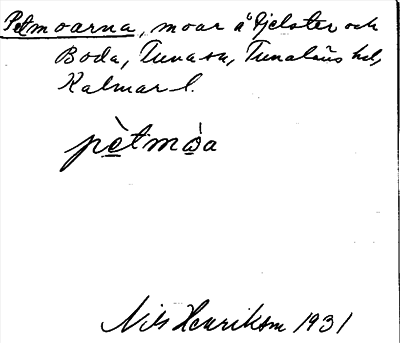 Petmoarna, moar å Gjelster och
Boda, Tuna sn, Tunaläns hd,
Kalmar l.
pètmòa
Nils Henrikson 1931